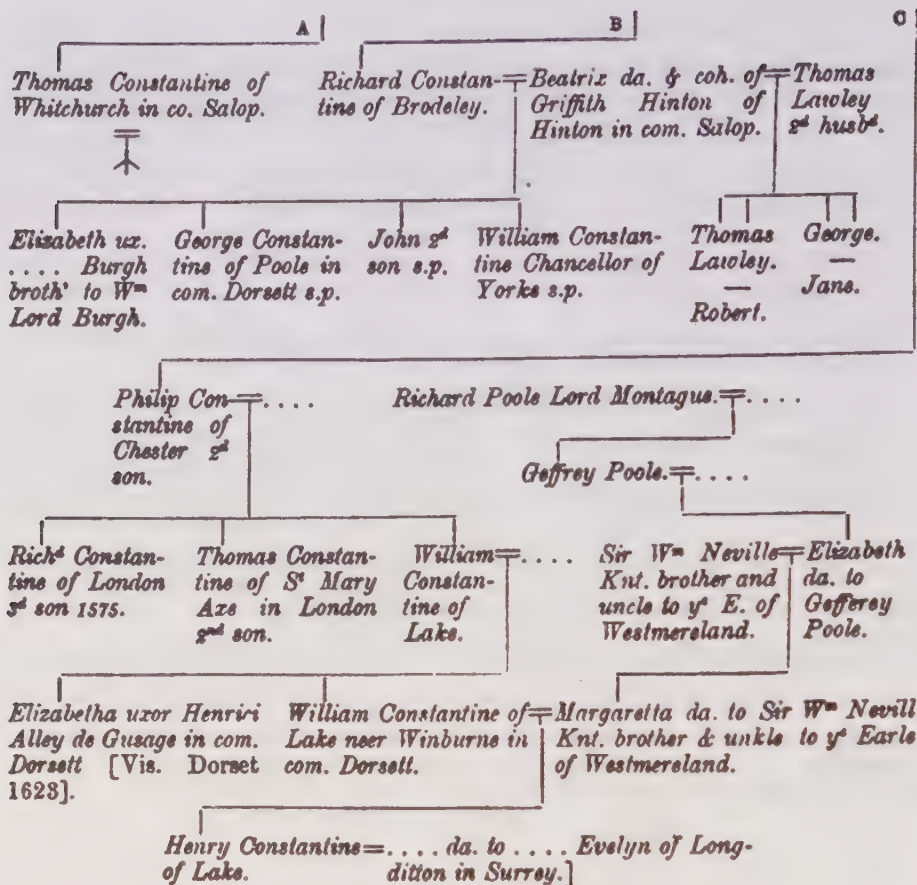 A B C
Thomas Constantine of
Whitchurch in co. Salop.
Richard Constan-
tine of Brodeley.
Beatrix da. & coh. of
Griffith Hinton of
Hinton in com. Salop.
Thomas
Lawley
2d husbd.
Elizabeth ux.
.... Burgh
brothr to Wm
Lord Burgh.
George Constan-
tine of Poole in
com. Dorsett s.p.
John 2d
son s.p.
William Constan-
tine Chancellor of
Yorke s.p.
Thomas
Lawley.
—
Robert.
George.
—
Jane.
Philip Con-
stantine of
Chester 2d
son.
....
Richard Poole Lord Montague.
....
Geffrey Poole.
....
Richd Constan-
tine of London
3d son 1575.
Thomas Constan-
tine of St Mary
Axe in London
2nd son.
William
Constan-
tine of
Lake.
....
Sir Wm Neville
Knt. brother and
uncle to ye E. of
Westmereland.
Elizabeth
da. to
Gefferey
Poole.
Elizabetha uxor Henrici
Alley de Gusage in com.
Dorsett [Vis. Dorset
1623].
William Constantine of
Lake neer Winburne in
com. Dorsett.
Margaretta da. to Sir Wm Nevill
Knt. brother & unkle to ye Earle
of Westmereland.
Henry Constantine=.... da. to .... Evelyn of Long-
of Lake. ditton in Surrey.]